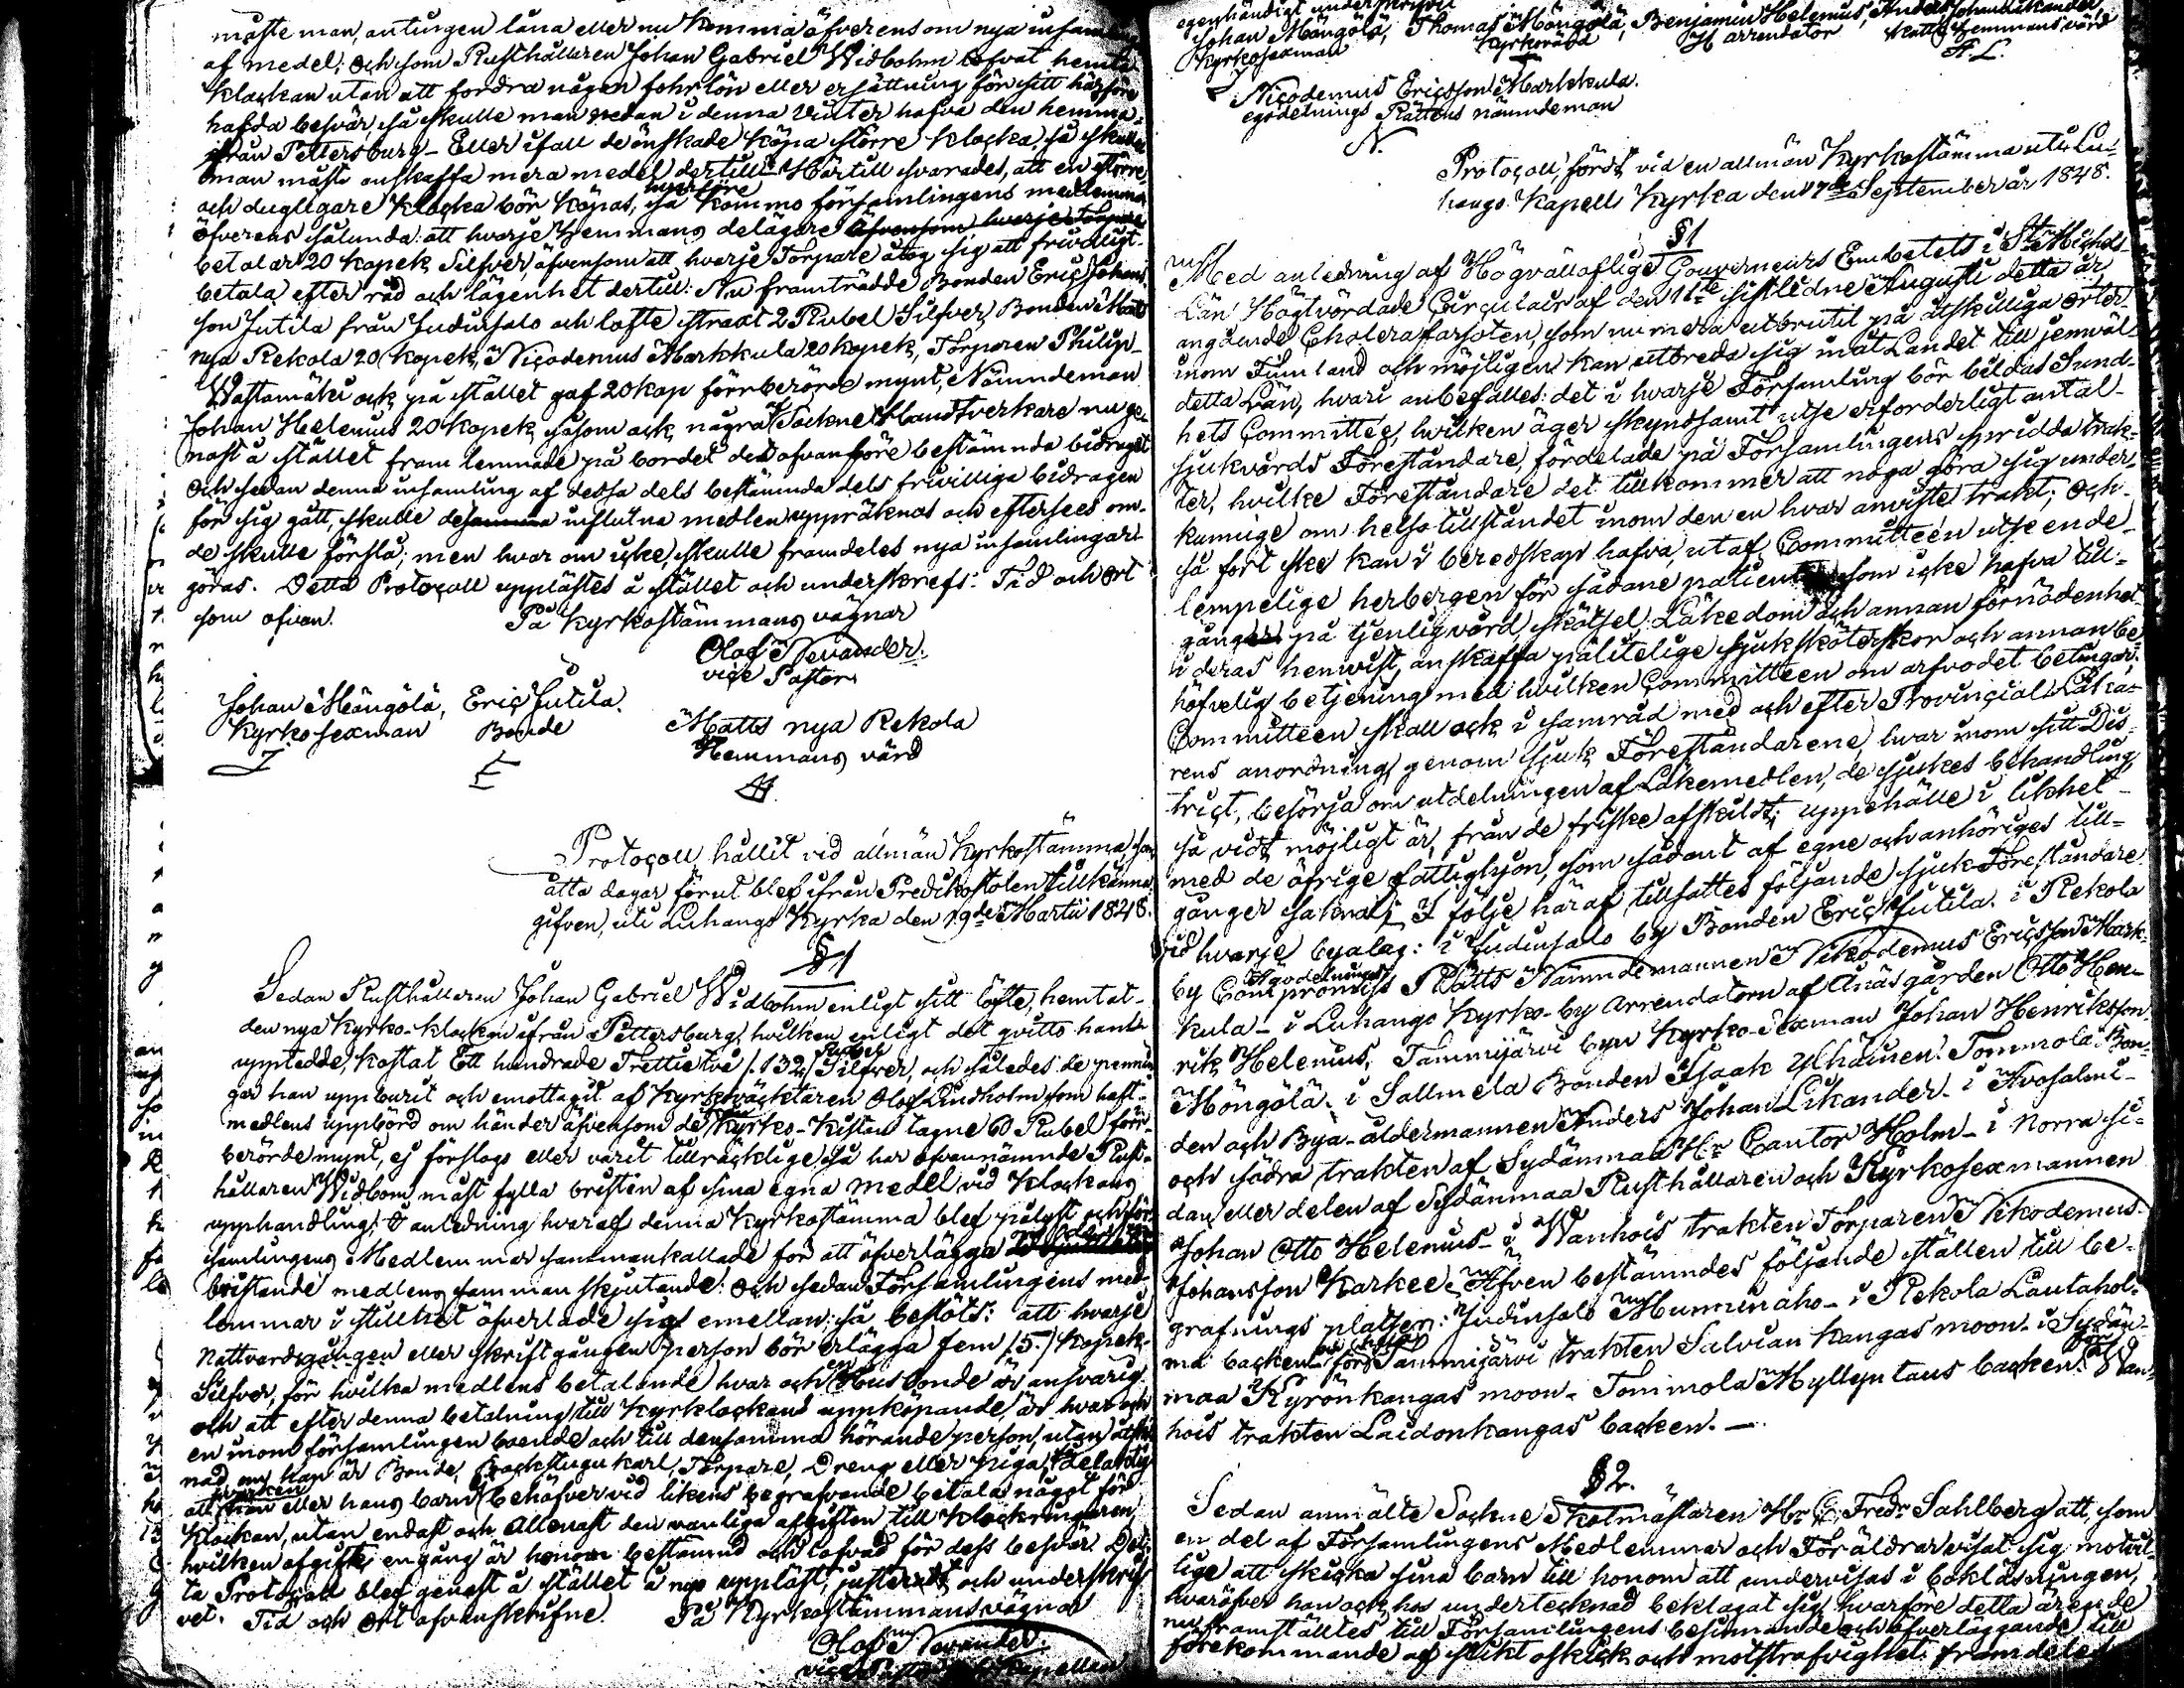 måste man, antingen låna eller nu komma öfverens om nya insamling
af medel; Och som Rusthållaren Johan Gabriel Widbohm lofvat hemta
klockan utan att fordra någon fohrlön eller ersättning för sitt härföre
hafda besvär, så skulle man redan i denna vinter hafva den hemma
ifrån Pettersburg - Eller ifall de önskade köpa större klocka, så skulle
man måste anskaffa mera medel dertill. Härtill svarades, att en större
och dugligare klocka bör köpas, hvarföre så kommo församlingens medlemmar
öfverens sålunda: att hvarje Hemmans delägare äfvensom hvarje Torpare
betalar 20 kopek Silfver, äfvensom att hvarje Torpare åtog sig att frivilligt
betala efter råd och lägenhet dertill: Nu framträdde Bonden Eric Johans
son Jutila från Judinsalo och lofte straxt 2 Rubel Silfver, Bonden Matts
nya Rekola 20 kopek, Nicodemus Markkula 20 kopek, Torparen Philip
Wattamäki ock på stället gaf 20 kop förrberörde mynt, Nämndeman
Johan Helenius 20 kopek, såsom ock några Sockne Handtverkare nu ge-
nast å stället fram lemnade på bordet det ofvanföre bestämnda bidraget
Och sedan denna insamling af dessa dels bestämnda dels frivilliga bidragen
för sig gått, skulle desamma influtna medlen uppräknas och efterses om
de skulle förslå; men hvar om icke, skulle framdeles nya insamlingar
göras. Detta Protocoll upplästes å stället och underskrefs: Tid och Ort
som ofvan. På Kyrkostämmans vägnar
Olof Nevander.
vice Pastor
Johan Mängölä, Eric Jutila. Matts nya Rekola
Kyrkosexman Bonde Hemmans värd
Protocoll, hållit vid allmän Kyrkostämma, som
åtta dagar förut blef ifrån Predikostolen tillkänna
gifven, uti Luhango Kyrka den 19de Martii 1848.
§ 1
Sedan Rusthållaren Johan Gabriel Widbohm enligt sitt löfte, hemtat
den nya Kyrko-klockan ifrån Pettersburg, hvilken enligt det qvitto han
uppteedde, kostat Ett hundrade Trettiotvå /:132/ Rubel Silfver, och således de pennin
gar han uppburit och emottagit af Kyrkoväcktaren Olof Lindholm som haft
medlens uppbörd om händer äfvensom de Kyrko-Kistan tagne 60 Rubel förr-
berörde mynt, ej förslogs eller varit tillräcklige så har ofvannämnde Rust-
hållaren Widbom måst fylla bristen af sina egna medel vid klockans
upphandling. I anledning hvaraf denna Kyrkostämma blef pålyst och för
samlingens Medlemmar sammankallade för att öfverlägga
bristande medlens sammanskjutande: Och sedan Församlingens med-
lemmar i stillhet öfverlade sig emellan: så beslöts: att hvarje
Nattvardsgången eller skriftgången person bör erlägga fem /5/ kopek
Silfver, för hvilka medlens betalande hvar och en Husbonde är ansvarig
och att efter denna betalning till Kyrkklockans uppköpande, är hvar och
en inom församlingen boende och till densamma hörande person, utan åtskil
nad om han är Bonde, Backstugu karl, Torpare, Dreng eller piga,
att hvarken han eller hans barn behöfver vid likens begrafvande betala något för
klockan, utan endast och allenast den vanliga afgiften till klockringaren,
hvilken afgift, en gång är honom bestämnd och lofvad för dess besvär. Det-
ta Protocoll blef genast å stället å nyo uppläst, justeradt och underskrif
vet. Tid och Ort ofvanskrifne. På Kyrkostämmans vägnar
Olof Nevander.
vice Pastor
egenhändigt underskrifvit
Johan Mängölä, Thomas Mängölä, Benjamin Helenius, Anders Johan Likander
Kyrkosexman Kyrkovärd Arrendator Hemmansvärd
A L.
Nicodemus Ericsson Markkula.
egodelnings Rättens nämndeman
N.
Protocoll, fördt vid en allmän Kyrkostämma uti Lu-
hango Kapells Kyrka den 17de September år 1848.
§ 1
Med anledning af Högvälloflige Gouverneurs Embetets i St Michels
Län Högtvördade Circulair af den 11te sistledne Augusti detta år
angående Cholera farsoten, som numera utbrutit på åtskilliga orter
inom Finnland och möjligen kan utbreda sig inåt Landet till jemväl
detta Län, hvari anbefalles: det i hvarje Församling bör bildas Sund-
hets Committee, hvilken äger skyndsamt utse erforderligt antal
sjukvårds Föreståndare, fördelade på Församlingens spridda trak-
ter, hvilke Föreståndare det tillkommer att noga göra sig under-
kunnige om helsotillståndet inom den en hvar anviste trakt; Och
så fort ske kan i beredskap hafva, utaf Committeen utseende
lempelige herbergen för sådane patienter som icke hafva till-
gång på tjenlig vård, skötsel, Läkedom och annan förnödenhet
i deras hemvist, anskaffa pålitelige sjukskötterskor och annan be-
höfvelig betjening med hvilken Committeen om arfvodet betingar;
Committeen skall ock i samråd med och efter Provincial Läka-
rens anordning, genom Sjuk Föreståndarene, hvar inom sitt Dis-
trict, besörja om utdelningen af Läkemedlen, de sjukes behandling,
så vidt möjligt är, från de friske afskildt, uppehälle i likhet
med de öfrige fattighjon, som sådant af egne och anhöriges till-
gånger saknas. I följe häraf tillsattes följande sjuk Föreståndare
i hvarje byalag: i Judinsalo by Bonden Eric Jutila. i Rekola
by Compromiss Ägodelnings Rätts Nämndemannen Nikodemus Ericsson Mark-
kula - i Luhango Kyrko-by Arrendatorn af Anäsgården Otto Hen-
rik Helenius, Tammijärvi byn Kyrko-Sexman Johan Henriksson
Möngölä. i Sallmela Bonden Isaak Ylhäinen. Tommola Bon-
den och Bya-åldermannen Anders Johan Likander - i Avosalmi
och södra trakten af Sydänmaa Hr Cantor Holm - i Norra si-
dan eller delen af Sydänmaa Rusthållaren och Kyrkosexmannen
Johan Otto Helenius - i Wanhois trakten Torparen Nikodemus
Johansson Karkee. Äfven bestämndes följande ställen till be-
grafnings platser: Judinsalo Munninaho - i Rekola Lautahol-
ma backen - för Tammijärvi trakten Salvian kangas moon - i Sydän-
maa Kyrönkangas moon - Tommola Myllyntaus backen. Wan-
hois trakten Laidonkangas backen. -
§ 2.
Sedan anmälte Sockne Skolmästaren Hr C. Fredr Sahlberg att, som
en del af Församlingens Medlemmar och Föräldrar visat sig motvil-
lige att skicka sina barn till honom att undervisas i bokläsningen,
hvaröfver han ock hos undertecknad beklagat sig hvarföre detta ärende
nu framställtes till Församlingens besinnande och öfverläggande till
förekommande af slikt oskick och motsträfvighet framdeles